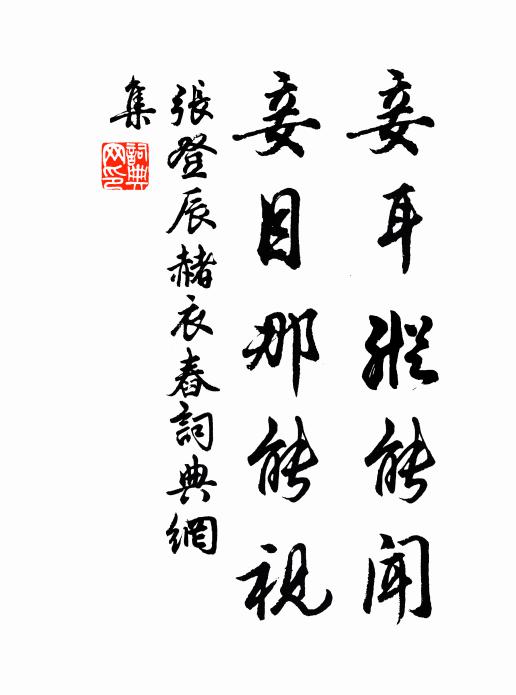 妾耳縱能聞
妾目那能視
張登辰赭衣舂詞典網
集
詞典
网印